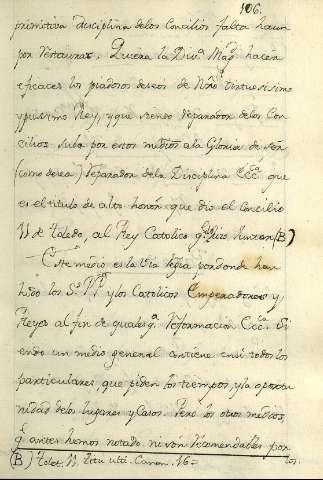 106.
primitiva disciplina delos Concilios falta haun
por restaurar. Quiera la Divª Magd hacer
eficaces los piadosos deseos de Nrô virtuosissimo
y puissimo Rey, y que siendo reparador delos Con
cilios suba por estos medios ala Gloria de ser
(como desea) reparador dela Disciplina Eccª que
es el titulo de alto honor que dio el Concilio
11 de Toledo, al Rey Catolico qº hizo (B)
Este medio es la via regia por donde han
ido los Sºs PPs y los Catolicos Emperadores y
Reyes al fin de qualesqª reformacion Eccª. Si
endo un medio general contiene en si todos los
particulares, que piden los tiempos, y la oportu
nidad delos lugares y Casos. Pero los otros medios,
q antes hemos notado ni son recomendables por
(B) Tolet. 11. Titu ulti. Canon. 16.
los